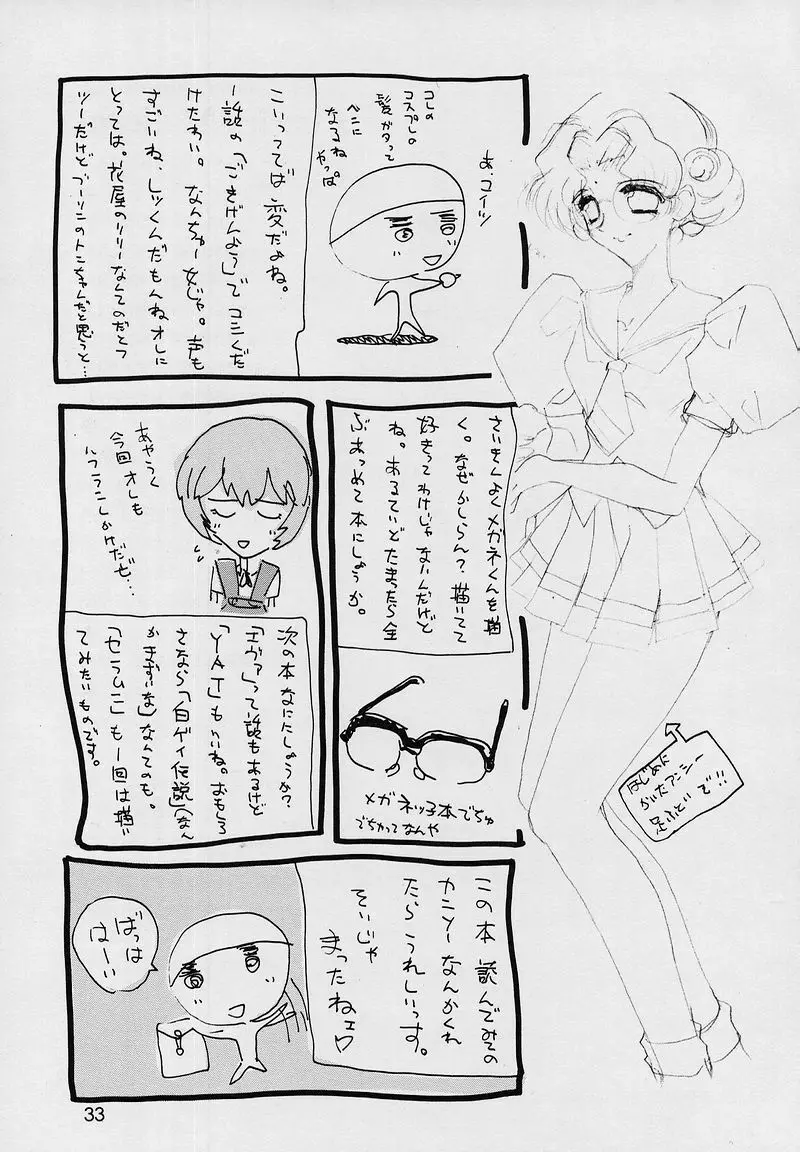 あ、コイツ
コレの
コスプレの
髪がタって
ベニに
なるね
やっぱ
こいつてば変だよね。
一話の「ごきげんよう」でコミくだ
けたわい。なんちゅー女じゃ。声も
すごいね、しっくんだもんね。オレに
とっては。花屋のリリーなんてのだとっ
ツーだけどブーリンのトンちゃんだと思うと…
さいきんよくメガネくんを描
く。なぜかしらん?描いてて
好きってわけじゃないんだけど
ね。あるていどたまったら全
ぶあつめて本にしようか。
メガネッ子本でちゅ
でちかってなんや
あやうく
今回オレも
しかけだぜ…
次の本なににしようか?
「エヴァ」って話もあるけど
「YAT」もいいね。おもしろ
さなら「白ゲイ伝説」(なん
かまずいな)なんてのも。
「セラムン」も一回は描い
てみたいものです。
はじめに
がいたアンシー
足ふとい で!!
この本 読んでみての
カンソーなんかくれ
たらうれしいっす。
そいじゃ
まったねェロ
ばっは
はーい
33